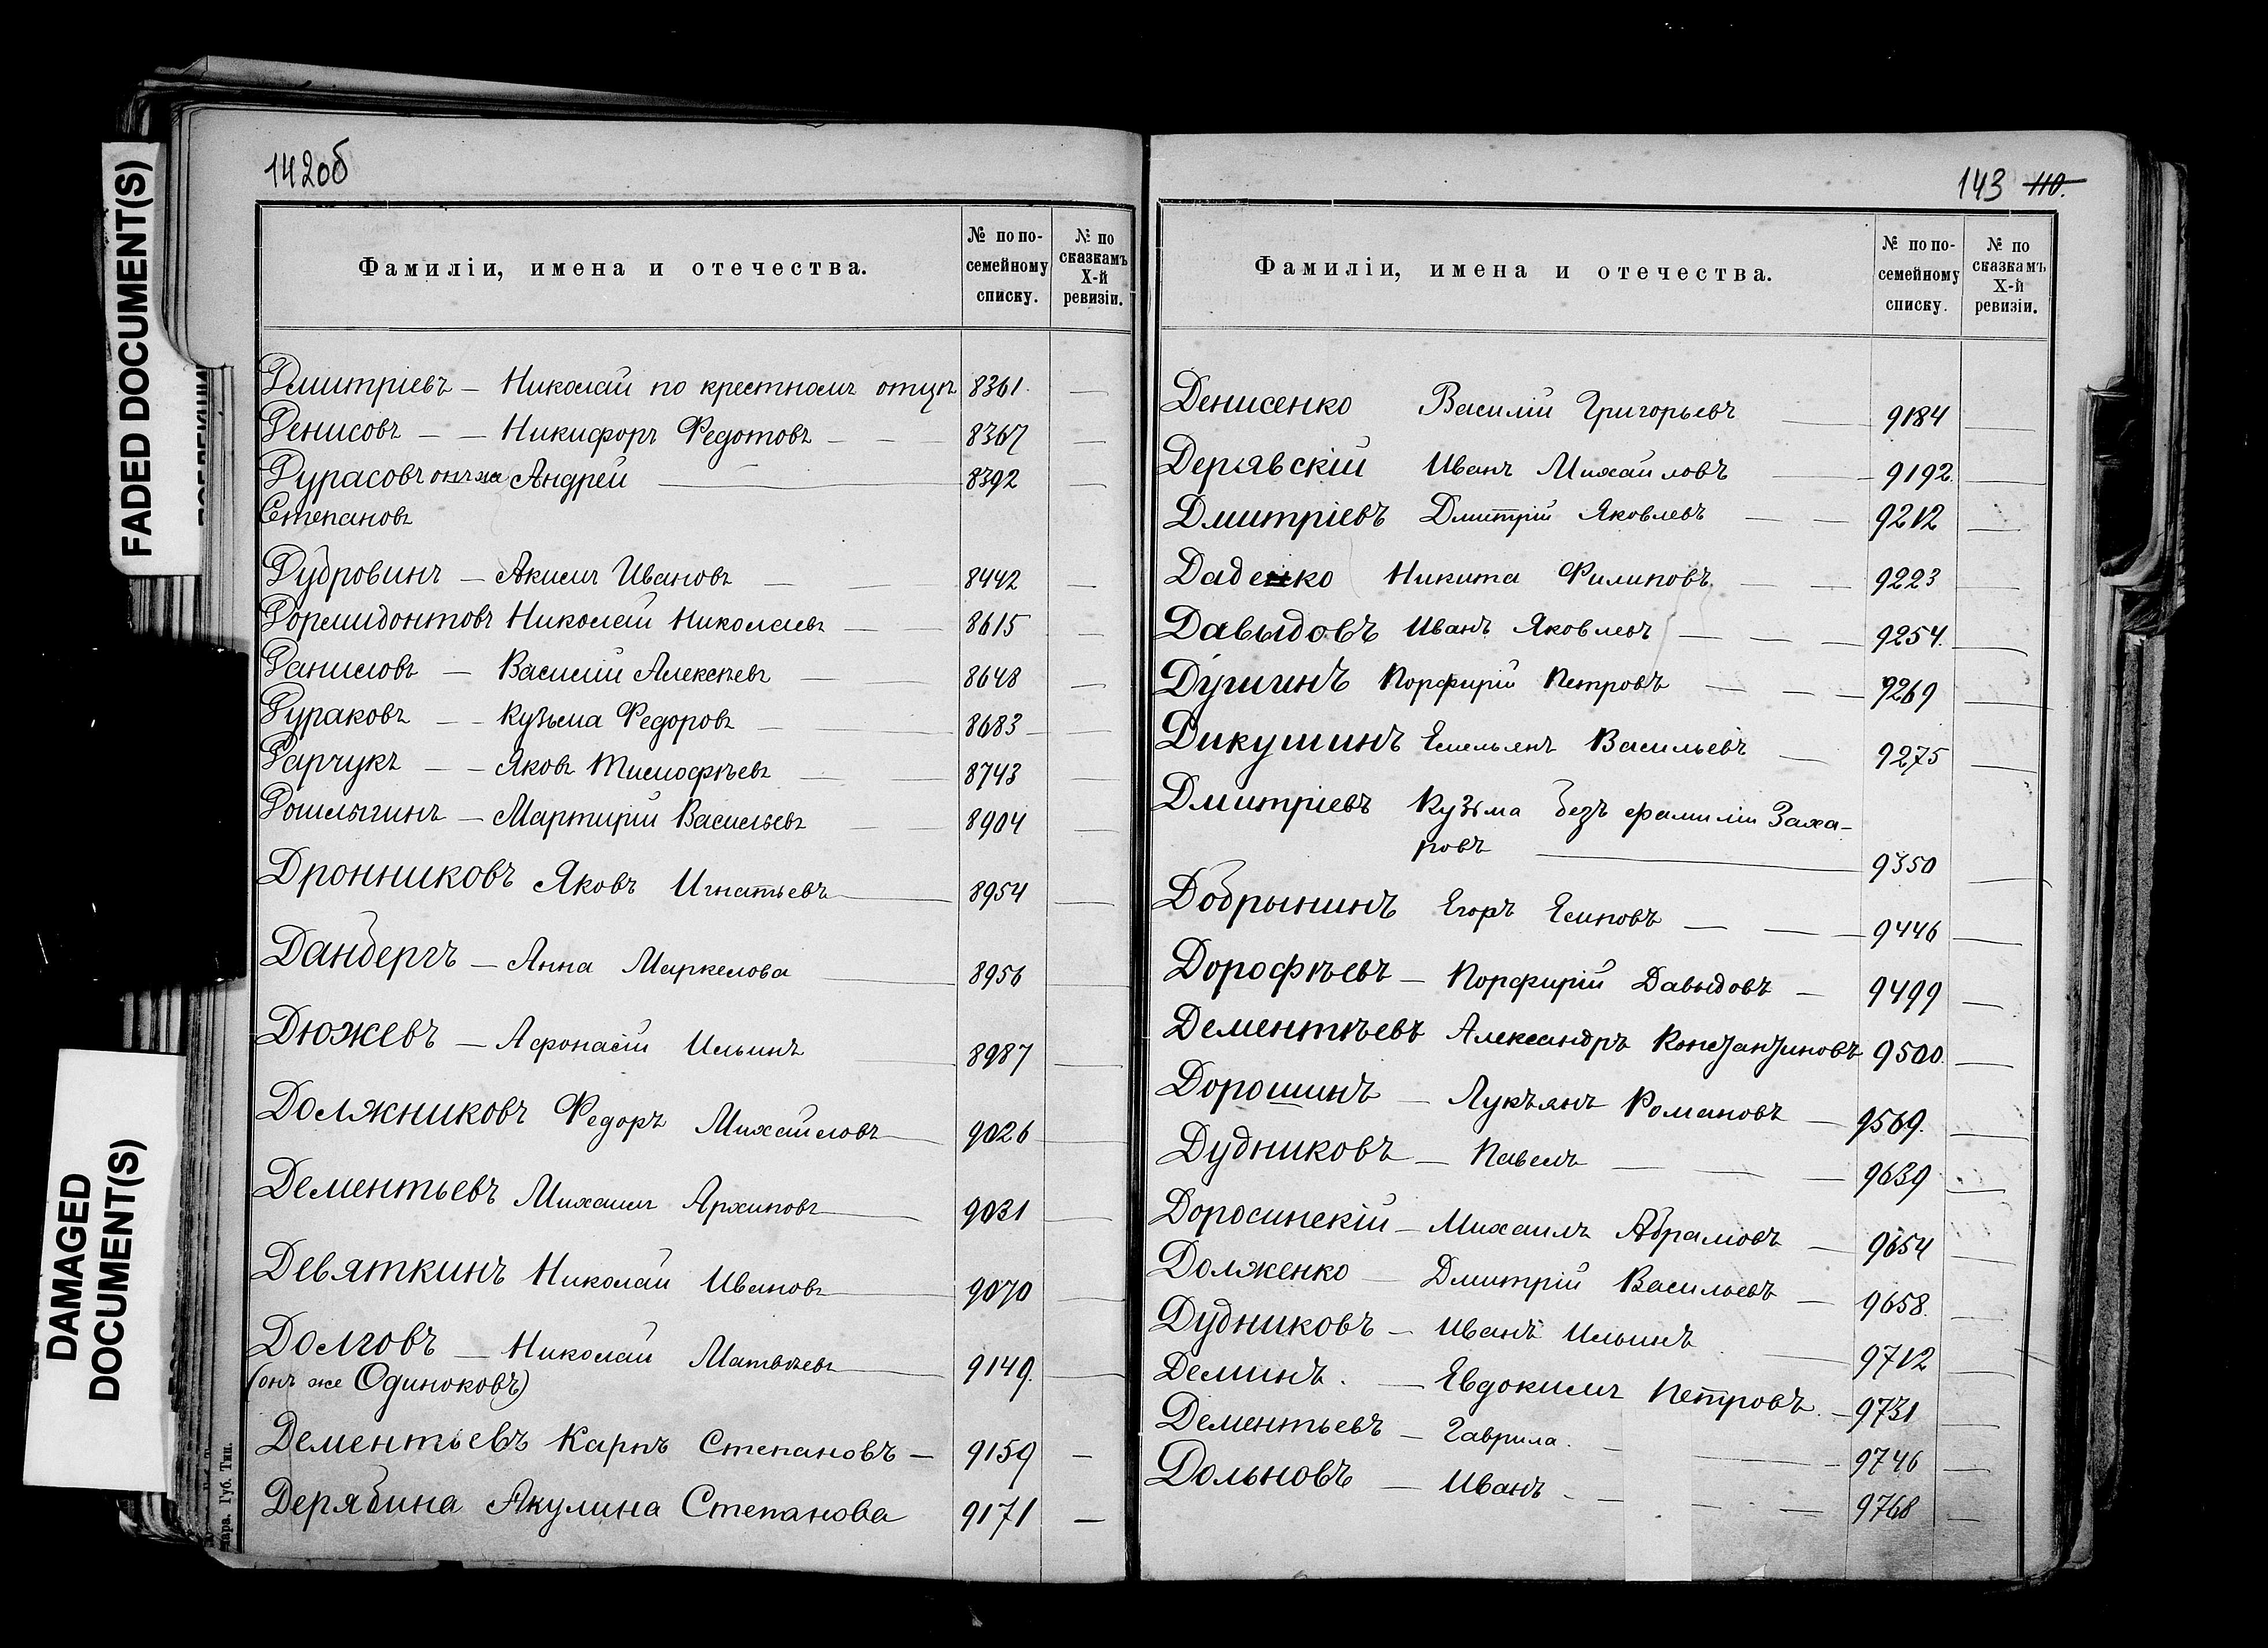 142об
Фамиліи, имена и отечества.
№ по по-семейному списку.
№ по сказкамъ X-й ревизіи.
Дмитріевъ — Николай по крестномъ отцѣ 8361 —
Денисовъ — — Никифоръ Федотовъ — — 8367 —
Дурасовъ онъ же Андрей — 8392 —
Степановъ
Дубровинъ — Акимъ Ивановъ — — 8442
Дормидонтовъ Николай Николаевъ — — 8615 —
Даниловъ — Василій Алексѣевъ — — 8648 —
Дураковъ — — Кузьма Федоровъ — — 8683 —
Дарчукъ — — Яковъ Тимофѣевъ — — 8743 —
Дошлыгинъ — Мартирій Васильевъ — — 8904 —
Дронниковъ Яковъ Игнатьевъ — 8954 —
Данбергъ — Анна Маркелова — 8956 —
Дюжевъ — Афонасій Ильинъ — 8987 —
Должниковъ Федоръ Михайловъ — 9026 —
Дементьевъ Михаилъ Архиповъ — 9031 —
Девяткинъ Николай Ивановъ — 9070 —
Долговъ — Николай Матвѣевъ — 9149. —
(онъ же Одиноковъ)
Дементьевъ Карпъ Степановъ — 9159 —
Дерябина Акулина Степанова 9171 —
пара. Губ. Тип.
143 110.
Фамиліи, имена и отечества.
№ по по-семейному списку.
№ по сказкамъ X-й ревизіи.
Денисенко Василій Григорьевъ — 9184 —
Дерявскій Иванъ Михайловъ — 9192. —
Дмитріевъ Дмитрій Яковлевъ — — 9212 —
Даденко Никита Филиповъ — — 9223 —
Давыдовъ Иванъ Яковлевъ — — — 9254. —
Душинъ Порфирій Петровъ — — — 9269 —
Дикушинъ Емельянъ Васильевъ — 9275 —
Дмитріевъ Кузьма безъ фамиліи Заха-
ровъ — 9350 —
Добрынинъ Егоръ Есиповъ — — — 9446 —
Дорофѣевъ — Порфирій Давыдовъ — 9499 —
Дементѣевъ Александръ Константиновъ 9500. —
Дорошинъ — Лукъянъ Романовъ — 9569. —
Дудниковъ — Павелъ — — — 9639 —
Доросинскій — Михаилъ Абрамовъ — 9654 —
Долженко — Дмитрій Васильевъ — 9658. —
Дудниковъ — Иванъ Ильинъ — 9712 —
Деминъ. — Евдокимъ Петровъ. — 9731 —
Дементьевъ — Гаврила. — — 9746 —
Дольновъ — Иванъ — — — 9768 —
FADED DOCUMENT(S)
DAMAGED
DOCUMENT(S)